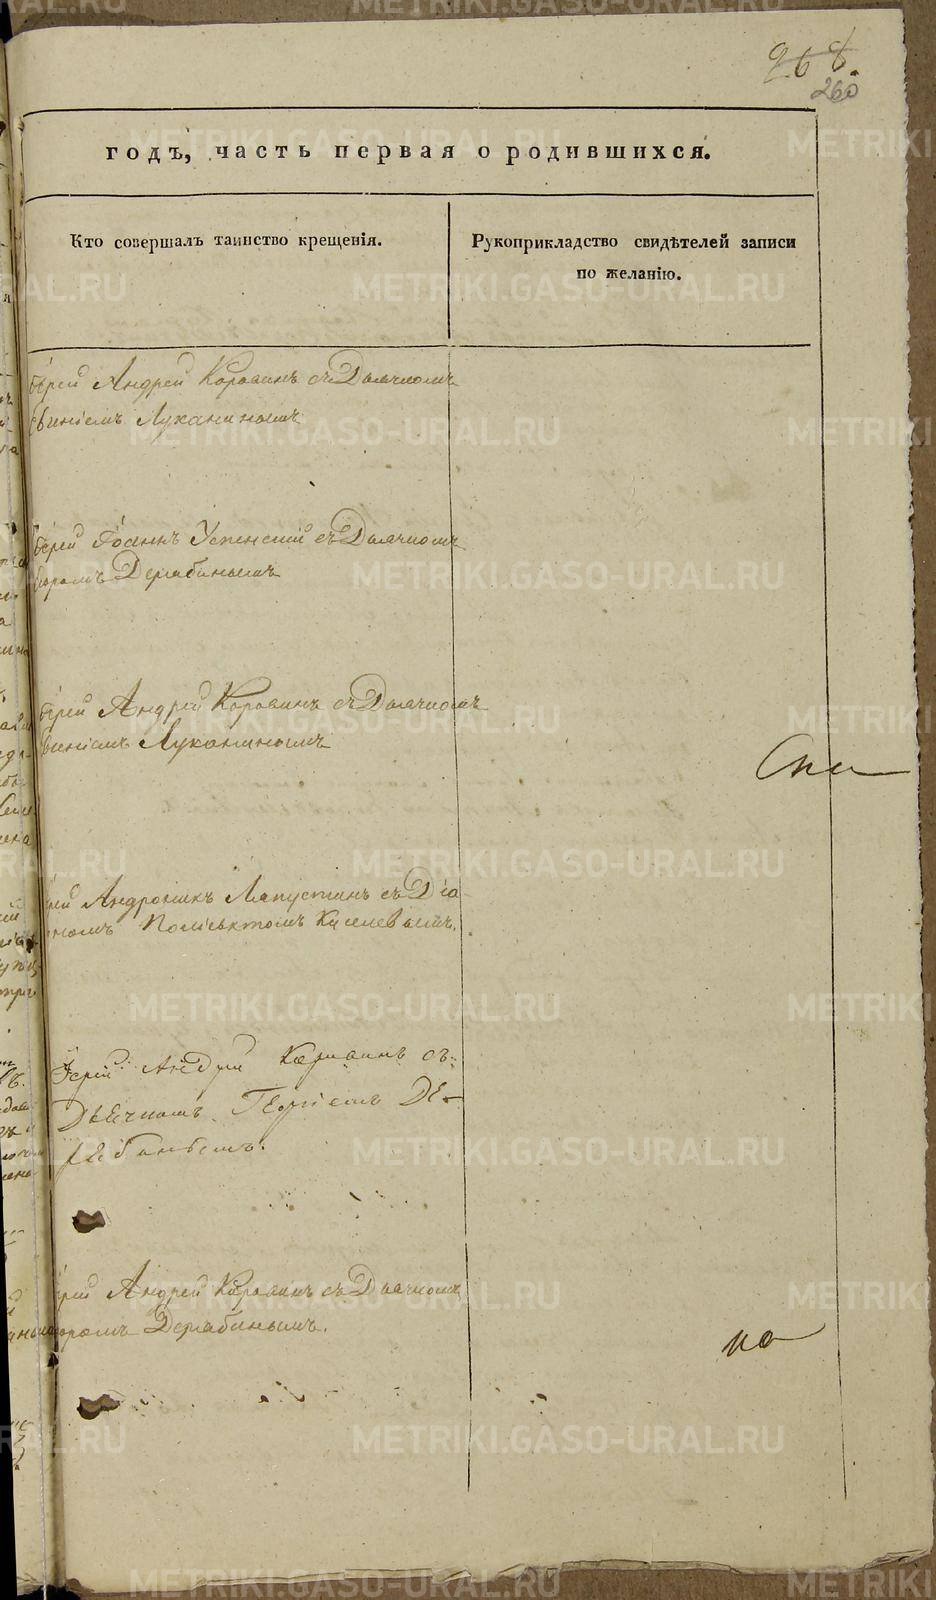 268.
260
годъ, часть первая о родившихся.
Кто совершалъ таинство крещенія.
Рукоприкладство свидѣтелей записи
по желанію.
Іерей Андрей Коровинъ съ Дьячкомъ
Лукянинымъ
Іерей Іоаннъ Успенскій съ Дьячкомъ
Дерябинымъ
Іерей Андрей Коровинъ съ Дьячкомъ
Лукянинымъ
Спи
рей Андроникъ Ляпустинъ съ Діа
Поліевктомъ Киселевымъ.
Іерей Андрей Коровинъ съ
Дьячкомъ Георгіемъ Де-
рябинымъ.
рей Андрей Коровинъ съ Дьячкомъ
Дерябинымъ.
но
METRIKI.GASO-URAL.RU